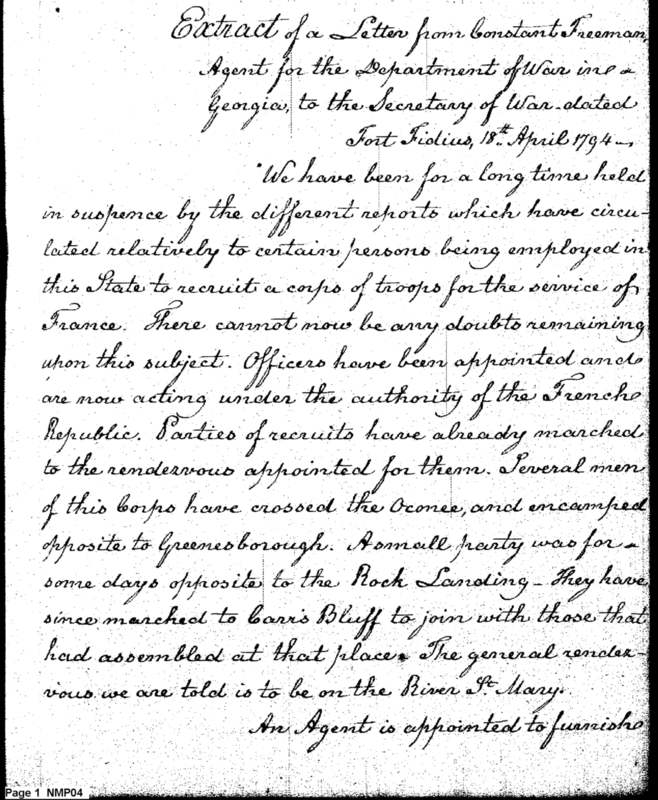 Extract of a Letter from Constant Freeman,
Agent for the Department of War in
Georgia, to the Secretary of War dated
Fort Fidius, 18th April 1794
"We have been for a long time held
in suspence by the different reports which have circu-
lated relatively to certain persons being employed in
this State to recruit a corps of troops for the service of
France. There cannot now be any doubts remaining
upon this subject. Officers have been appointed and
are now acting under the authority of the French
Republic. Parties of recruits have already marched
to the rendezvous appointed for them. Several men
of this Corps have crossed the Oconee, and encamped
opposite to Greenesborough. A small party was for
some days opposite to the Rock Landing - They have
since marched to Carr's Bluff to join with those that
had assembled at that place. The general rendez-
vous we are told is to be on the River St. Mary.
An Agent is appointed to furnish
Page 1 NMP04